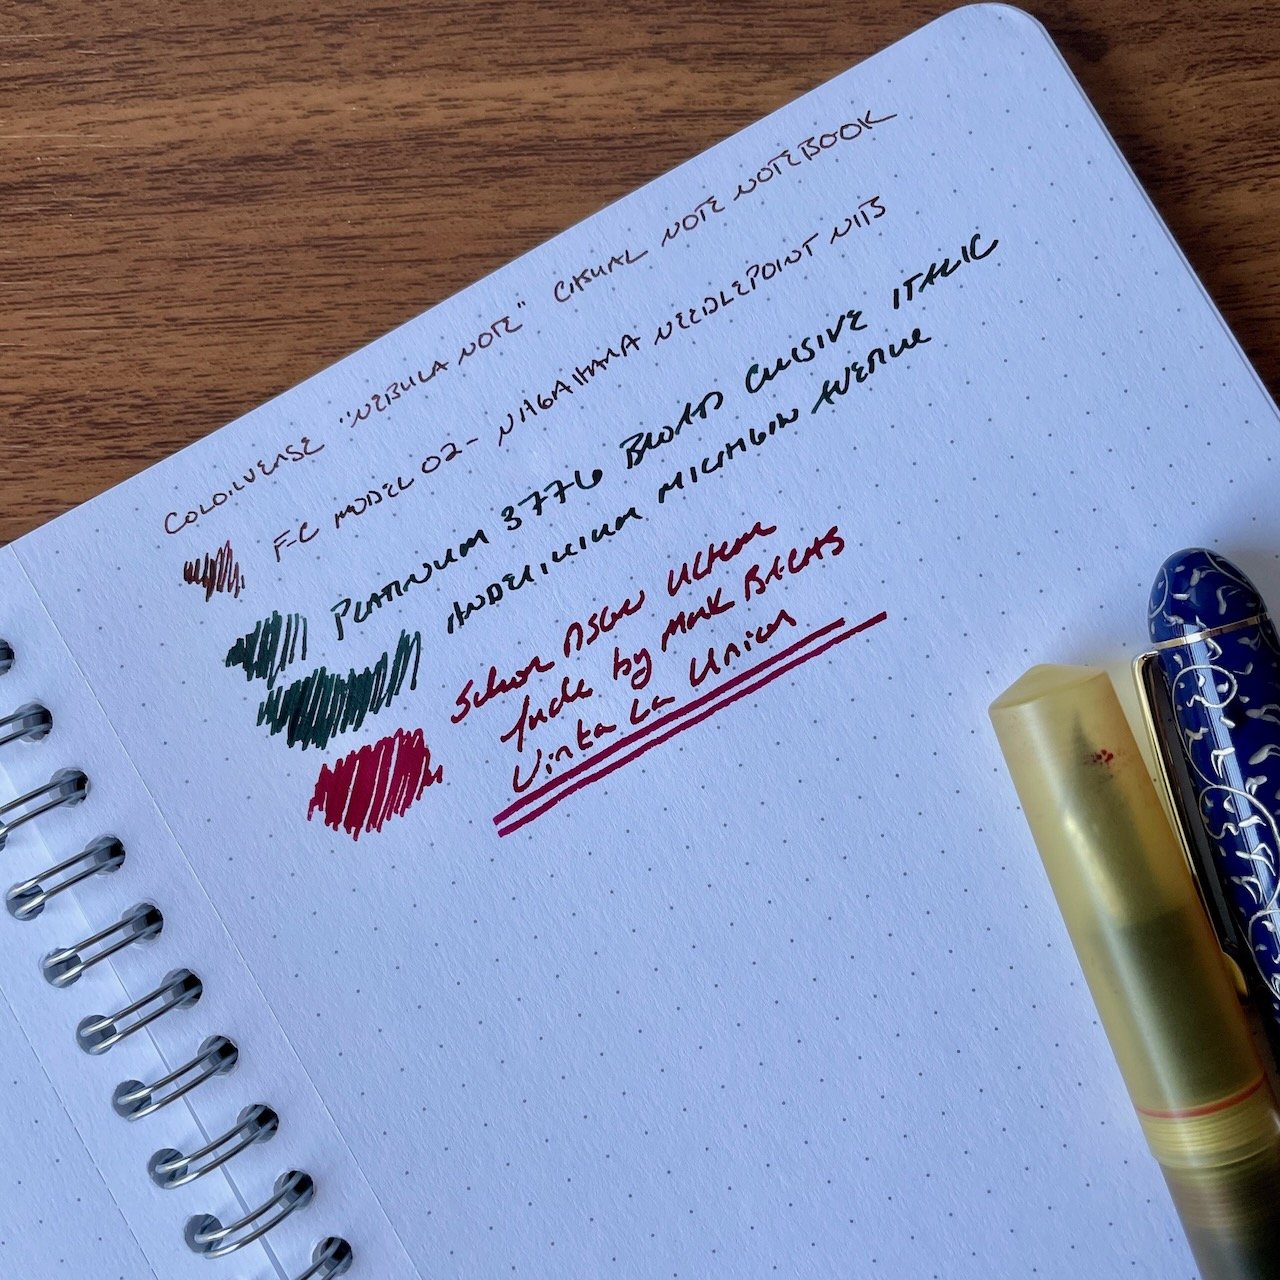 COLORVERSE "NEBULA NOTE" CASUAL NOTE NOTEBOOK
F-C MODEL 02 - NAGAHARA NEEDLEPOINT NIB
PLATINUM 3776 BROAD CURSIVE ITALIC
ANDERILLIUM MICHIGAN AVENUE
Schon DSGN Ultem
fude by Mark Bacas
Vinta La Union